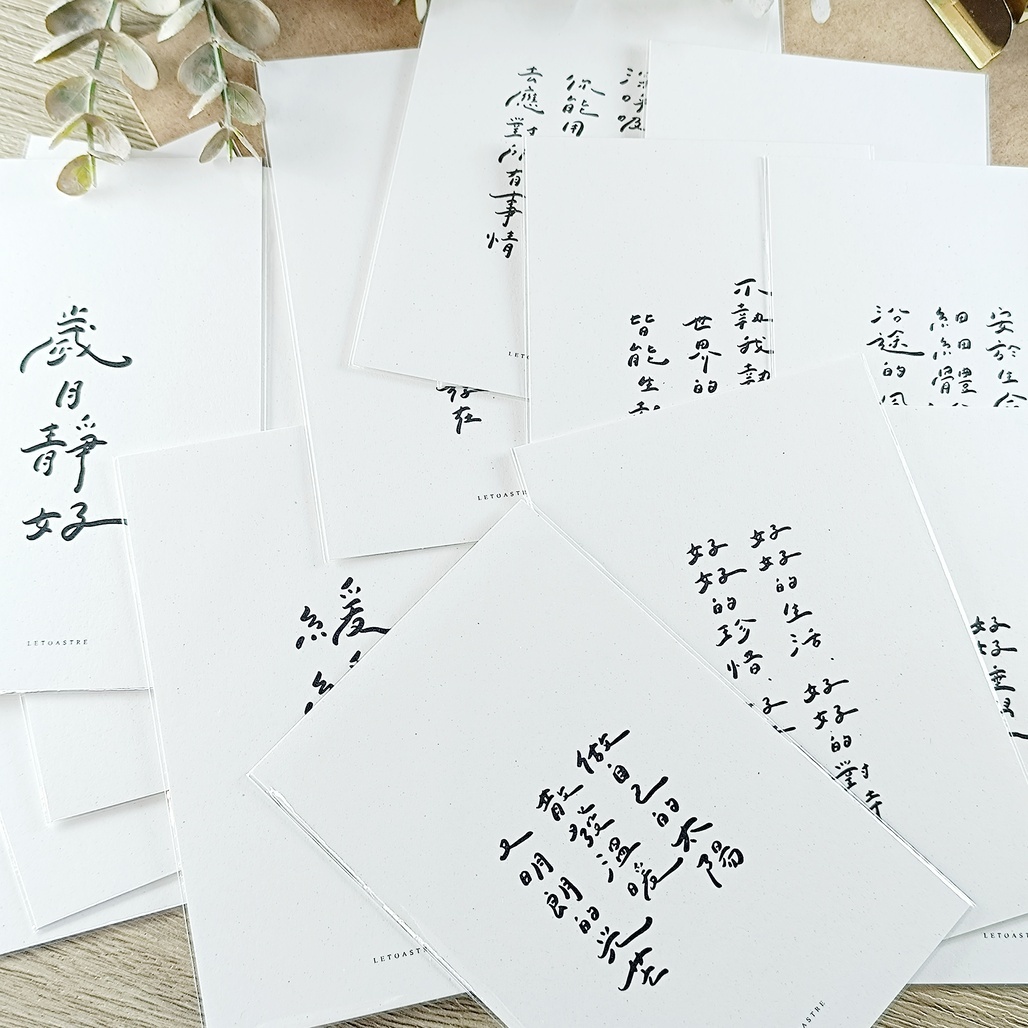 深呼吸
你能用
去應對所有事情
LETO
不執我執
世界的
皆能生
安於生
細細體
沿途的
歲月靜好
LETOASTRE
存在
LETOASTRE
緩
LETOASTRE
好好的生活、好好的對
好好的珍惜、好
好好
LETOAS
做自己的太陽
散發溫暖
又明朗的光芒
OASTRE